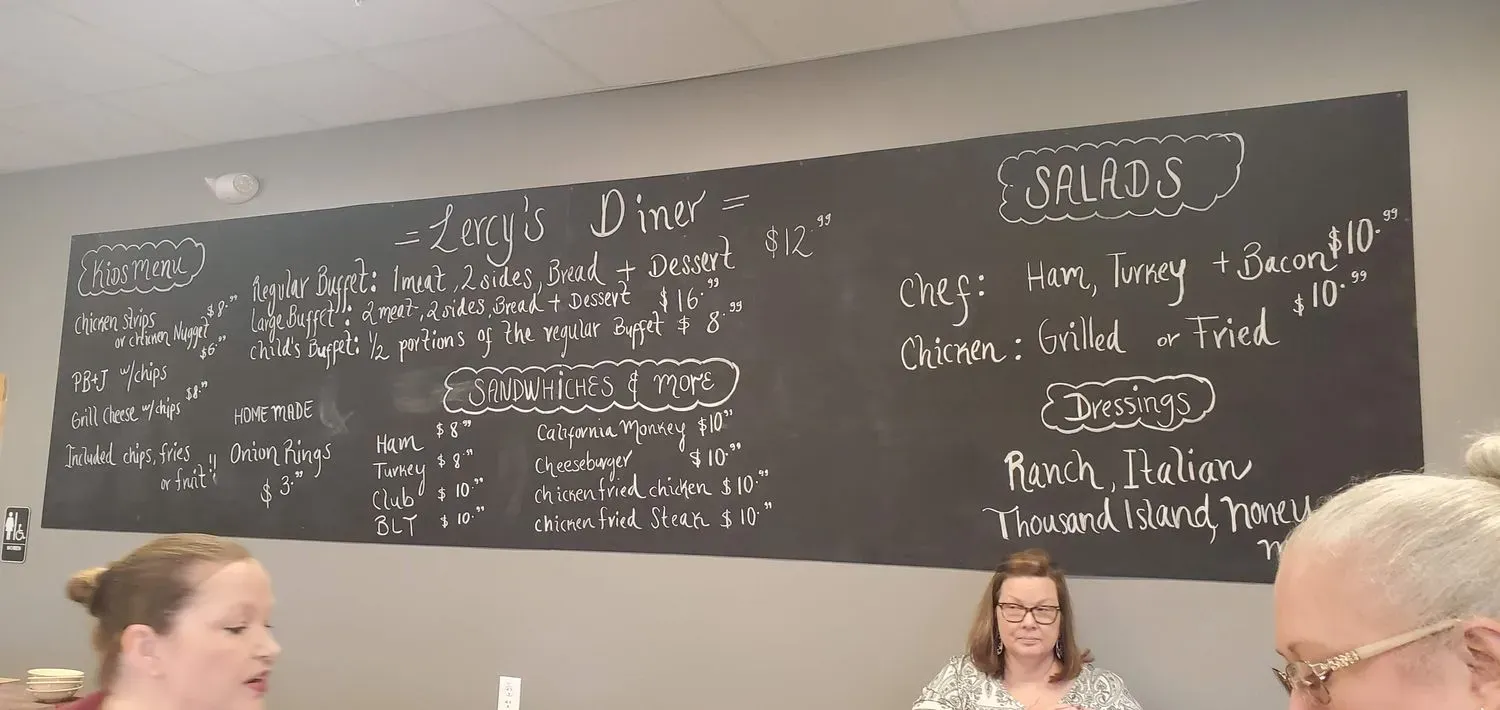 = Lercy's Diner =
Kids Menu
Chicken Strips $8.99
or chicken Nugget
PB+J w/chips $6.99
Grill Cheese w/chips $8.99
Included chips, fries
or fruit!!
HOMEMADE
Onion Rings
$3.99
Regular Buffet: 1 meat, 2 sides, Bread + Dessert $12.99
Large Buffet: 2 meat, 2 sides, Bread + Dessert $16.99
Child's Buffet: 1/2 portions of the regular Buffet $8.99
SANDWHICHES & MORE
Ham $8.99
Turkey $8.99
Club $10.99
BLT $10.99
California Monkey $10.99
Cheeseburger $10.99
chicken fried chicken $10.99
chicken fried Steak $10.99
SALADS
Chef: Ham, Turkey + Bacon $10.99
Chicken: Grilled or Fried $10.99
Dressings
Ranch, Italian
Thousand Island, honey